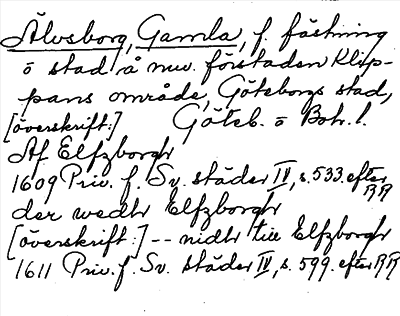 Älvsborg, Gamla, f. fästning
o stad å nuv. förstaden Klip-
pans område, Göteborgs stad,
[överskrift:] Göteb. o Boh. l.
Af Elfzborgh
1609 Priv. f. Sv. städer IV, s. 533. efter RR
der wedh Elfzborgh
[överskrift:] -- nidh till Elfzborgh
1611 Priv. f. Sv. städer IV, s. 599. efter RR